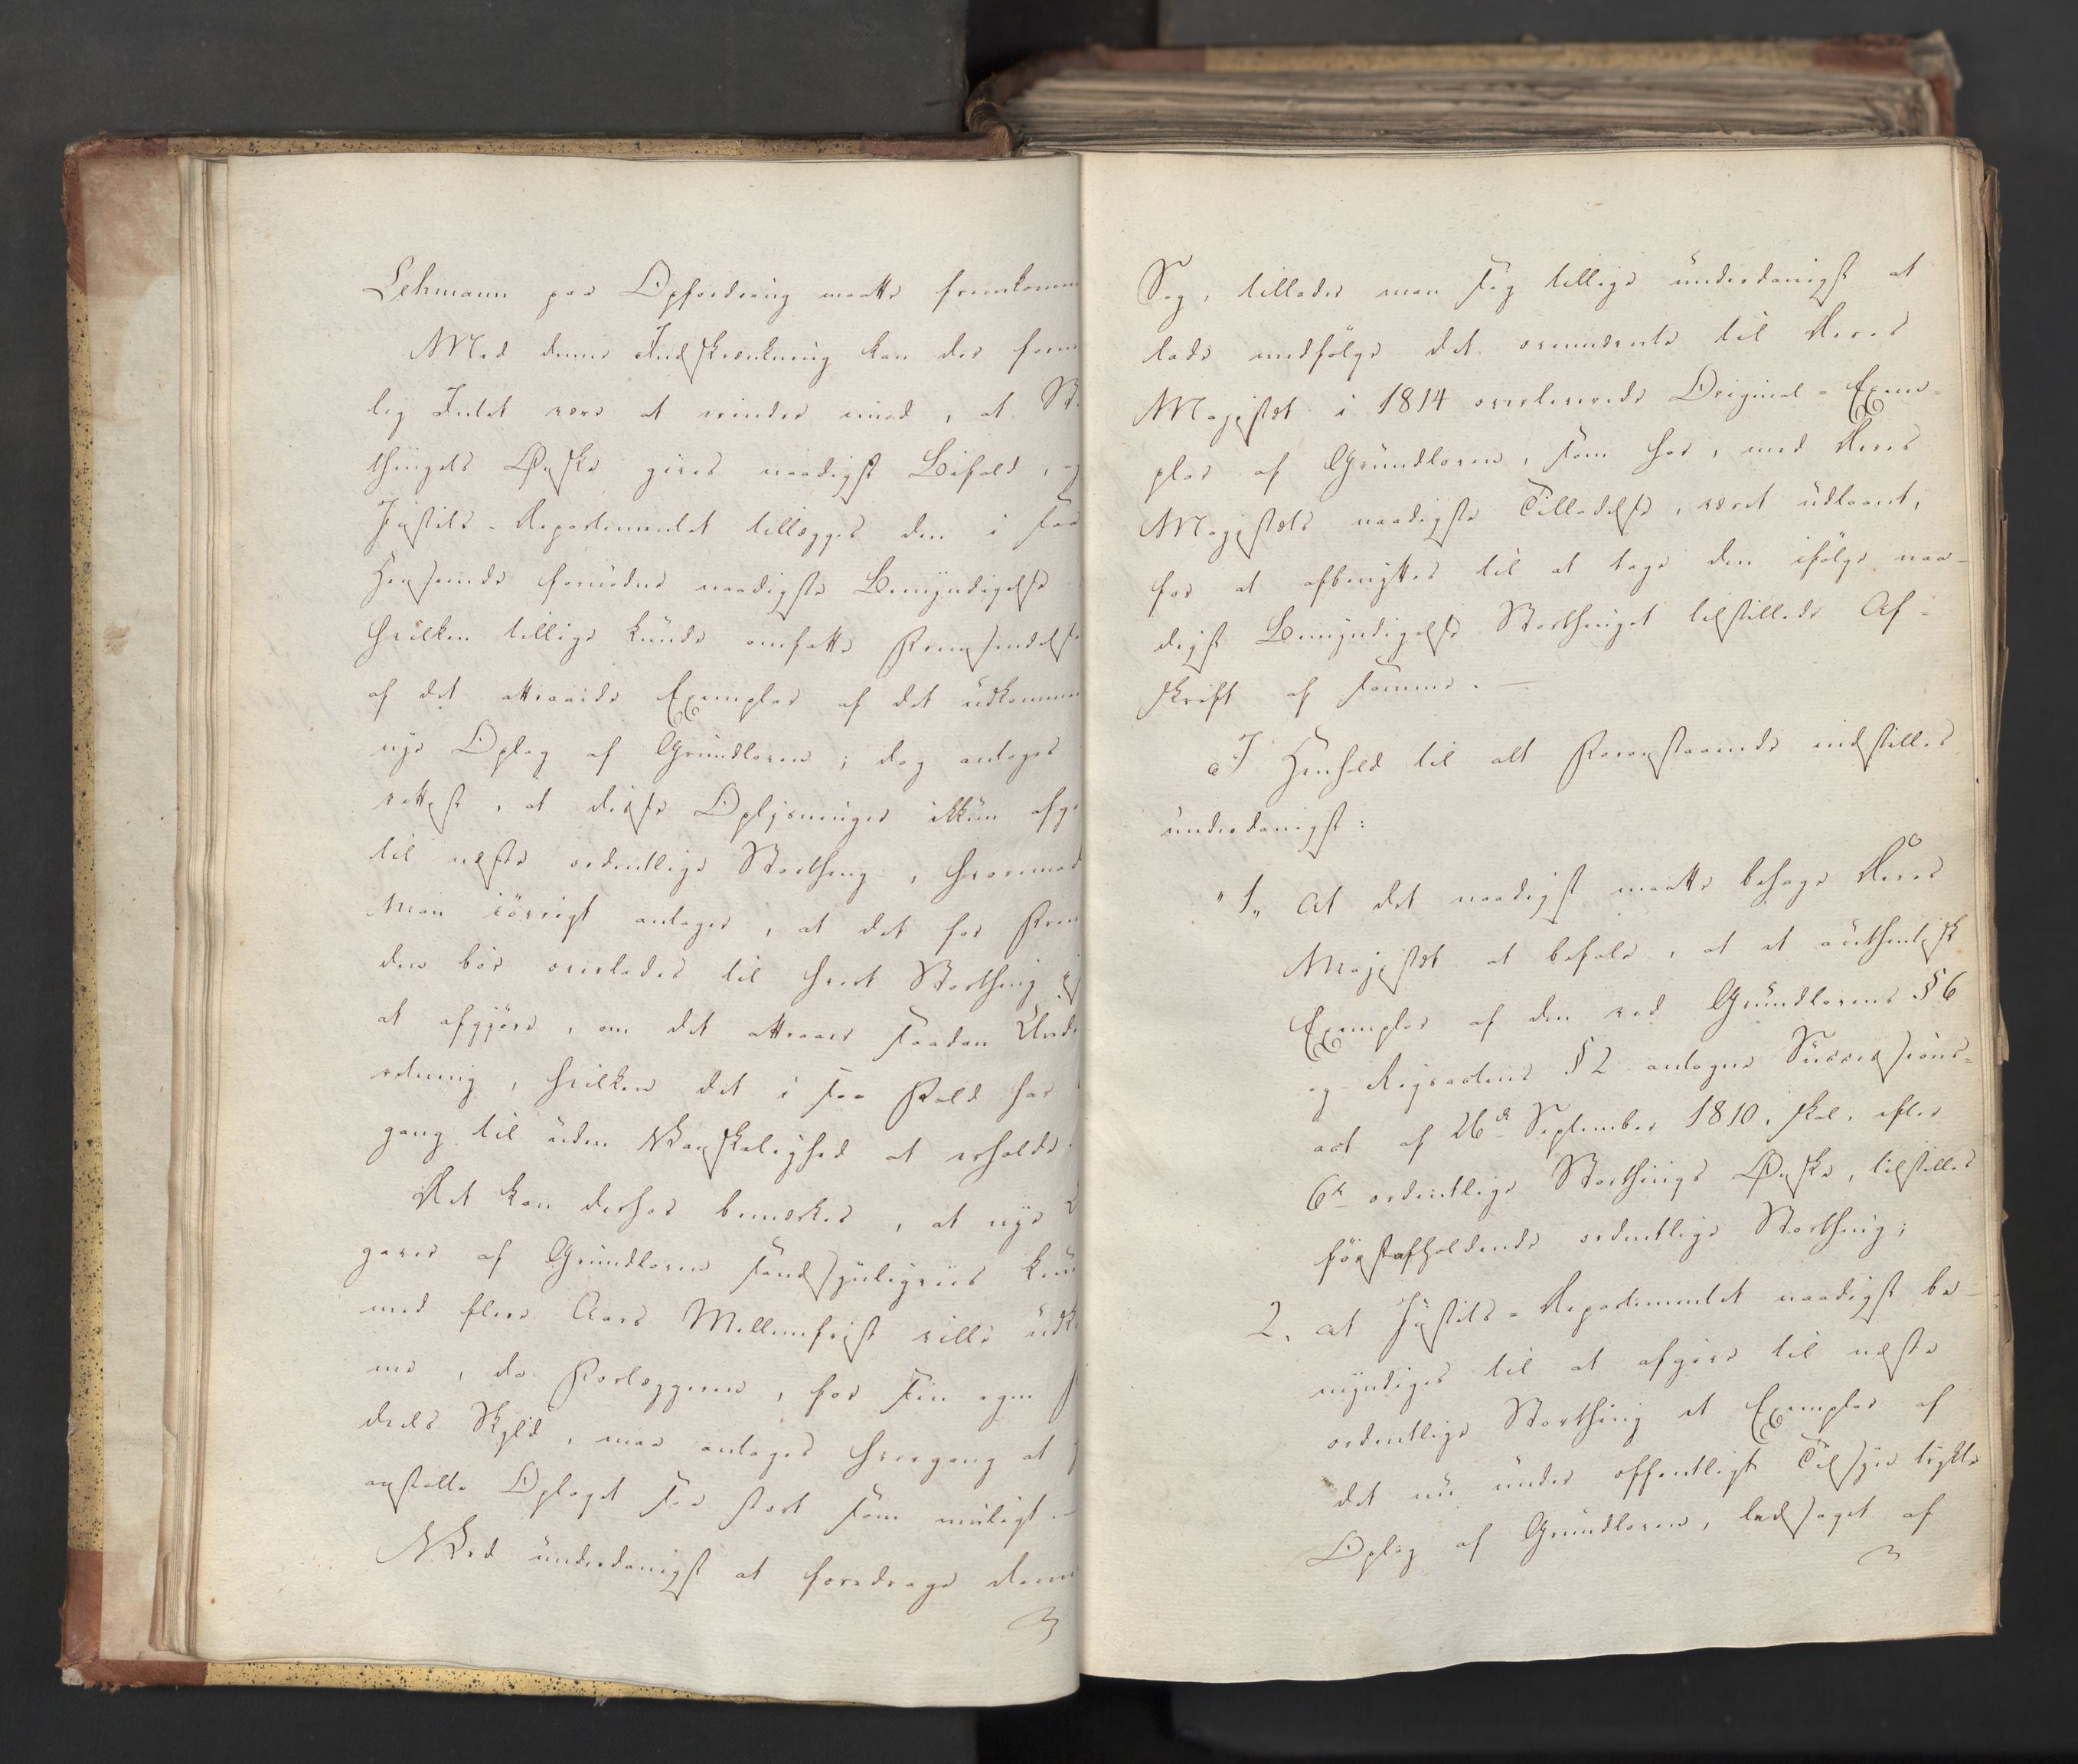 Lehmann paa Opfordring maatte fremkomm
Med denne Indskrænkning kan der form
lig Intet være at erindre imod, at St
thingets Ønske gives naadigst Bifald, og
Justits-Departementet tillægges den i saa
Henseende fornødne naadigste Bemyndigelse
hvilken tillige kunde omfatte Fremsendelse
af det attraaede Exemplar af det udkomme
nye Oplag af Grundloven; dog antages
rettest, at disse Oplysninger ikkun afgi
til næste ordentlige Storthing, hvorimod
man iøvrigt antager, at det for Frem
den bør overlades til hvert Storthing
at afgjøre, om det attraaer saadan Und
retning, hvilken det i saa Fald har
gang til uden Vanskelighed at erholde.
Det kan derhos bemærkes, at nye
gaver af Grundloven sandsynligviis kun
med flere Aars Mellemfrist ville udk
me, da Forlæggeren, for sin egen
deels Skyld, maa antages hvergang at
anstalte Oplaget saa stort som muligt.
Ved underdanigst at foredrage denne
Sag, tillader man sig tillige underdanigst at
lade medfølge det ommeldte til Deres
Majestæt i 1814 overleverede Original-Exem-
plar af Grundloven, som har, med Deres
Majestæts naadigste Tilladelse, været udlaant,
for at afbenyttes til at tage den ifølge naa-
digst Bemyndigelse Storthinget tilstillede Af-
skrift af samme. —
I Henhold til alt Foranstaaende indstilles
underdanigst:
"1" at det naadigst maatte behage Deres
Majestæt at befale, at et authentisk
Exemplar af den ved Grundlovens § 6
og Rigsactens § 2 antagne Successions-
act af 26de September 1810, skal, efter
6te ordentlige Storthings Ønske, tilstilles
førstafholdende ordentlige Storthing;
2, at Justits-Departementet naadigst be-
myndiges til at afgive til næste
ordentlige Storthing et Exemplar af
det nu under offentligt Tilsyn trykte
Oplag af Grundloven, ledsaget af